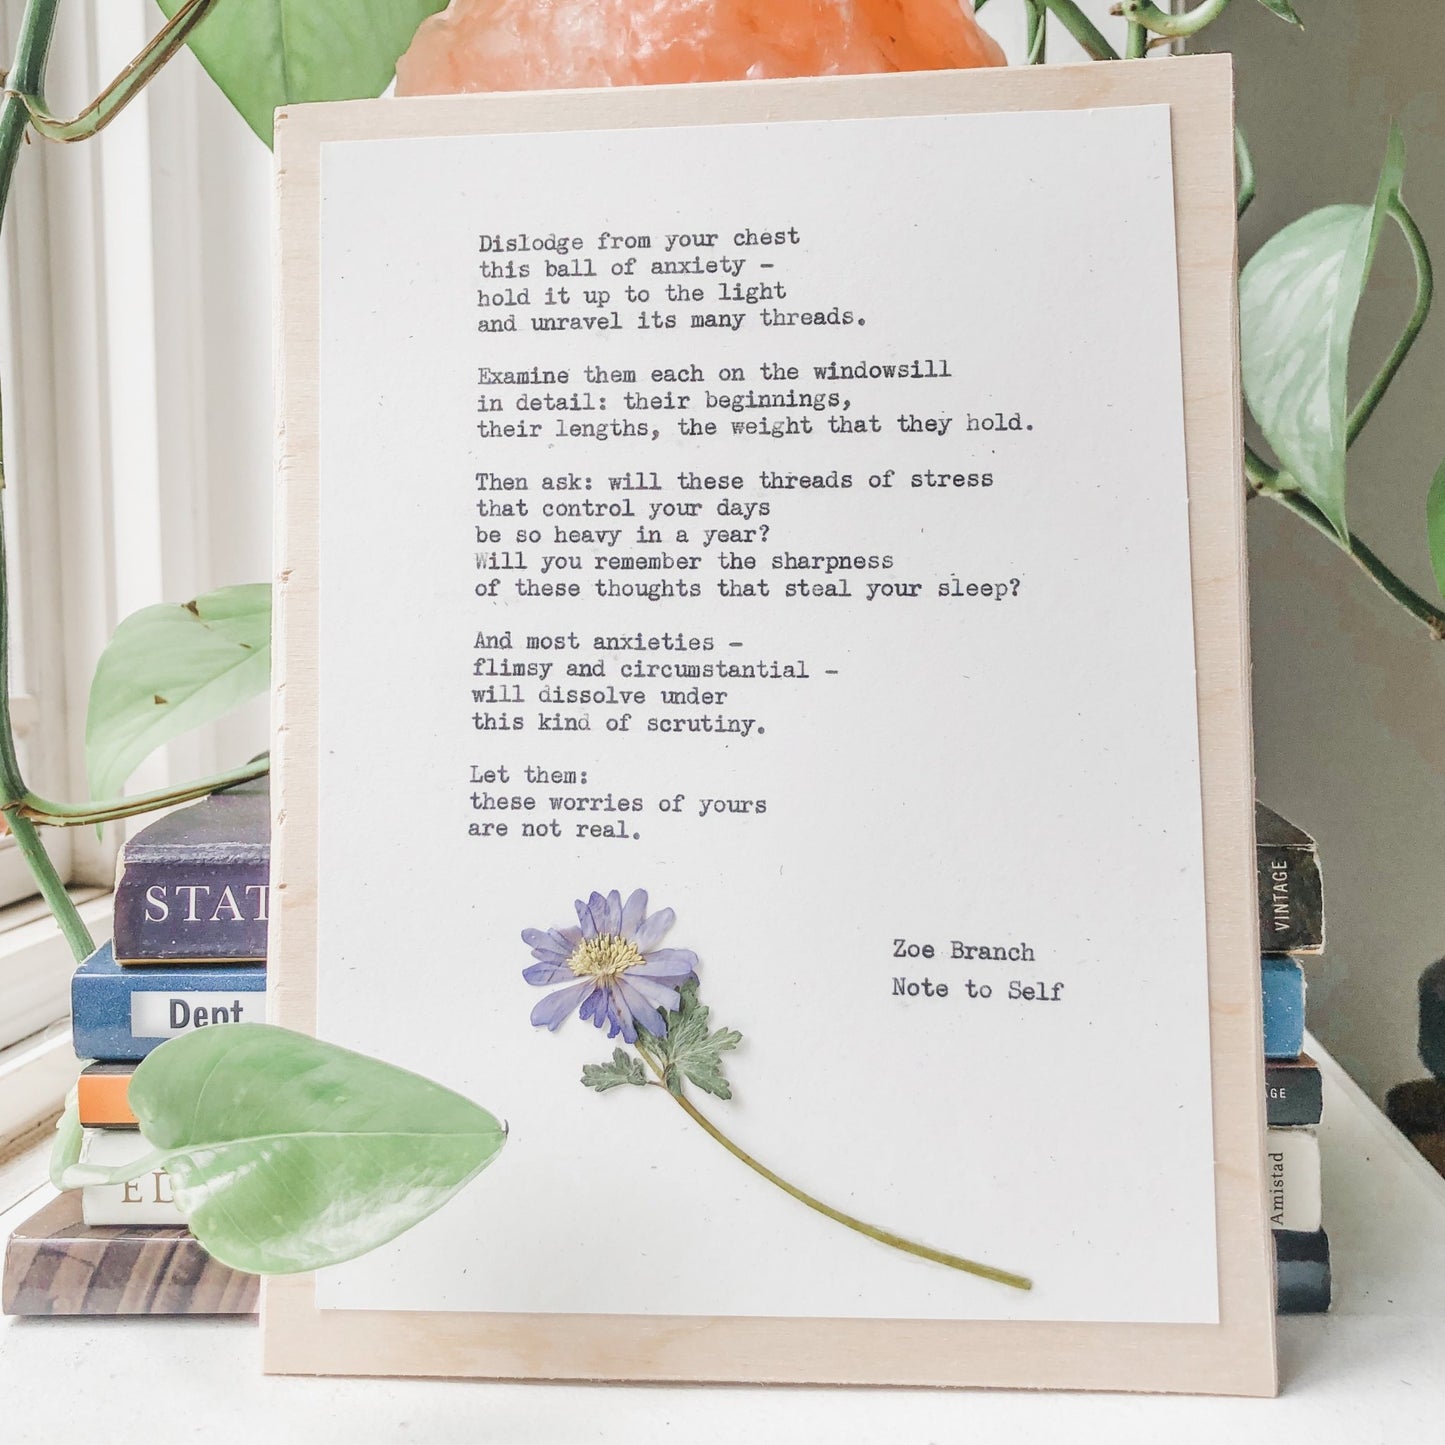 Dislodge from your chest
this ball of anxiety -
hold it up to the light
and unravel its many threads.
Examine them each on the windowsill
in detail: their beginnings,
their lengths, the weight that they hold.
Then ask: will these threads of stress
that control your days
be so heavy in a year?
Will you remember the sharpness
of these thoughts that steal your sleep?
And most anxieties -
flimsy and circumstantial -
will dissolve under
this kind of scrutiny.
Let them:
these worries of yours
are not real.
Zoe Branch
Note to Self
STAT
Dept
ED
VINTAGE
GE
Amistad